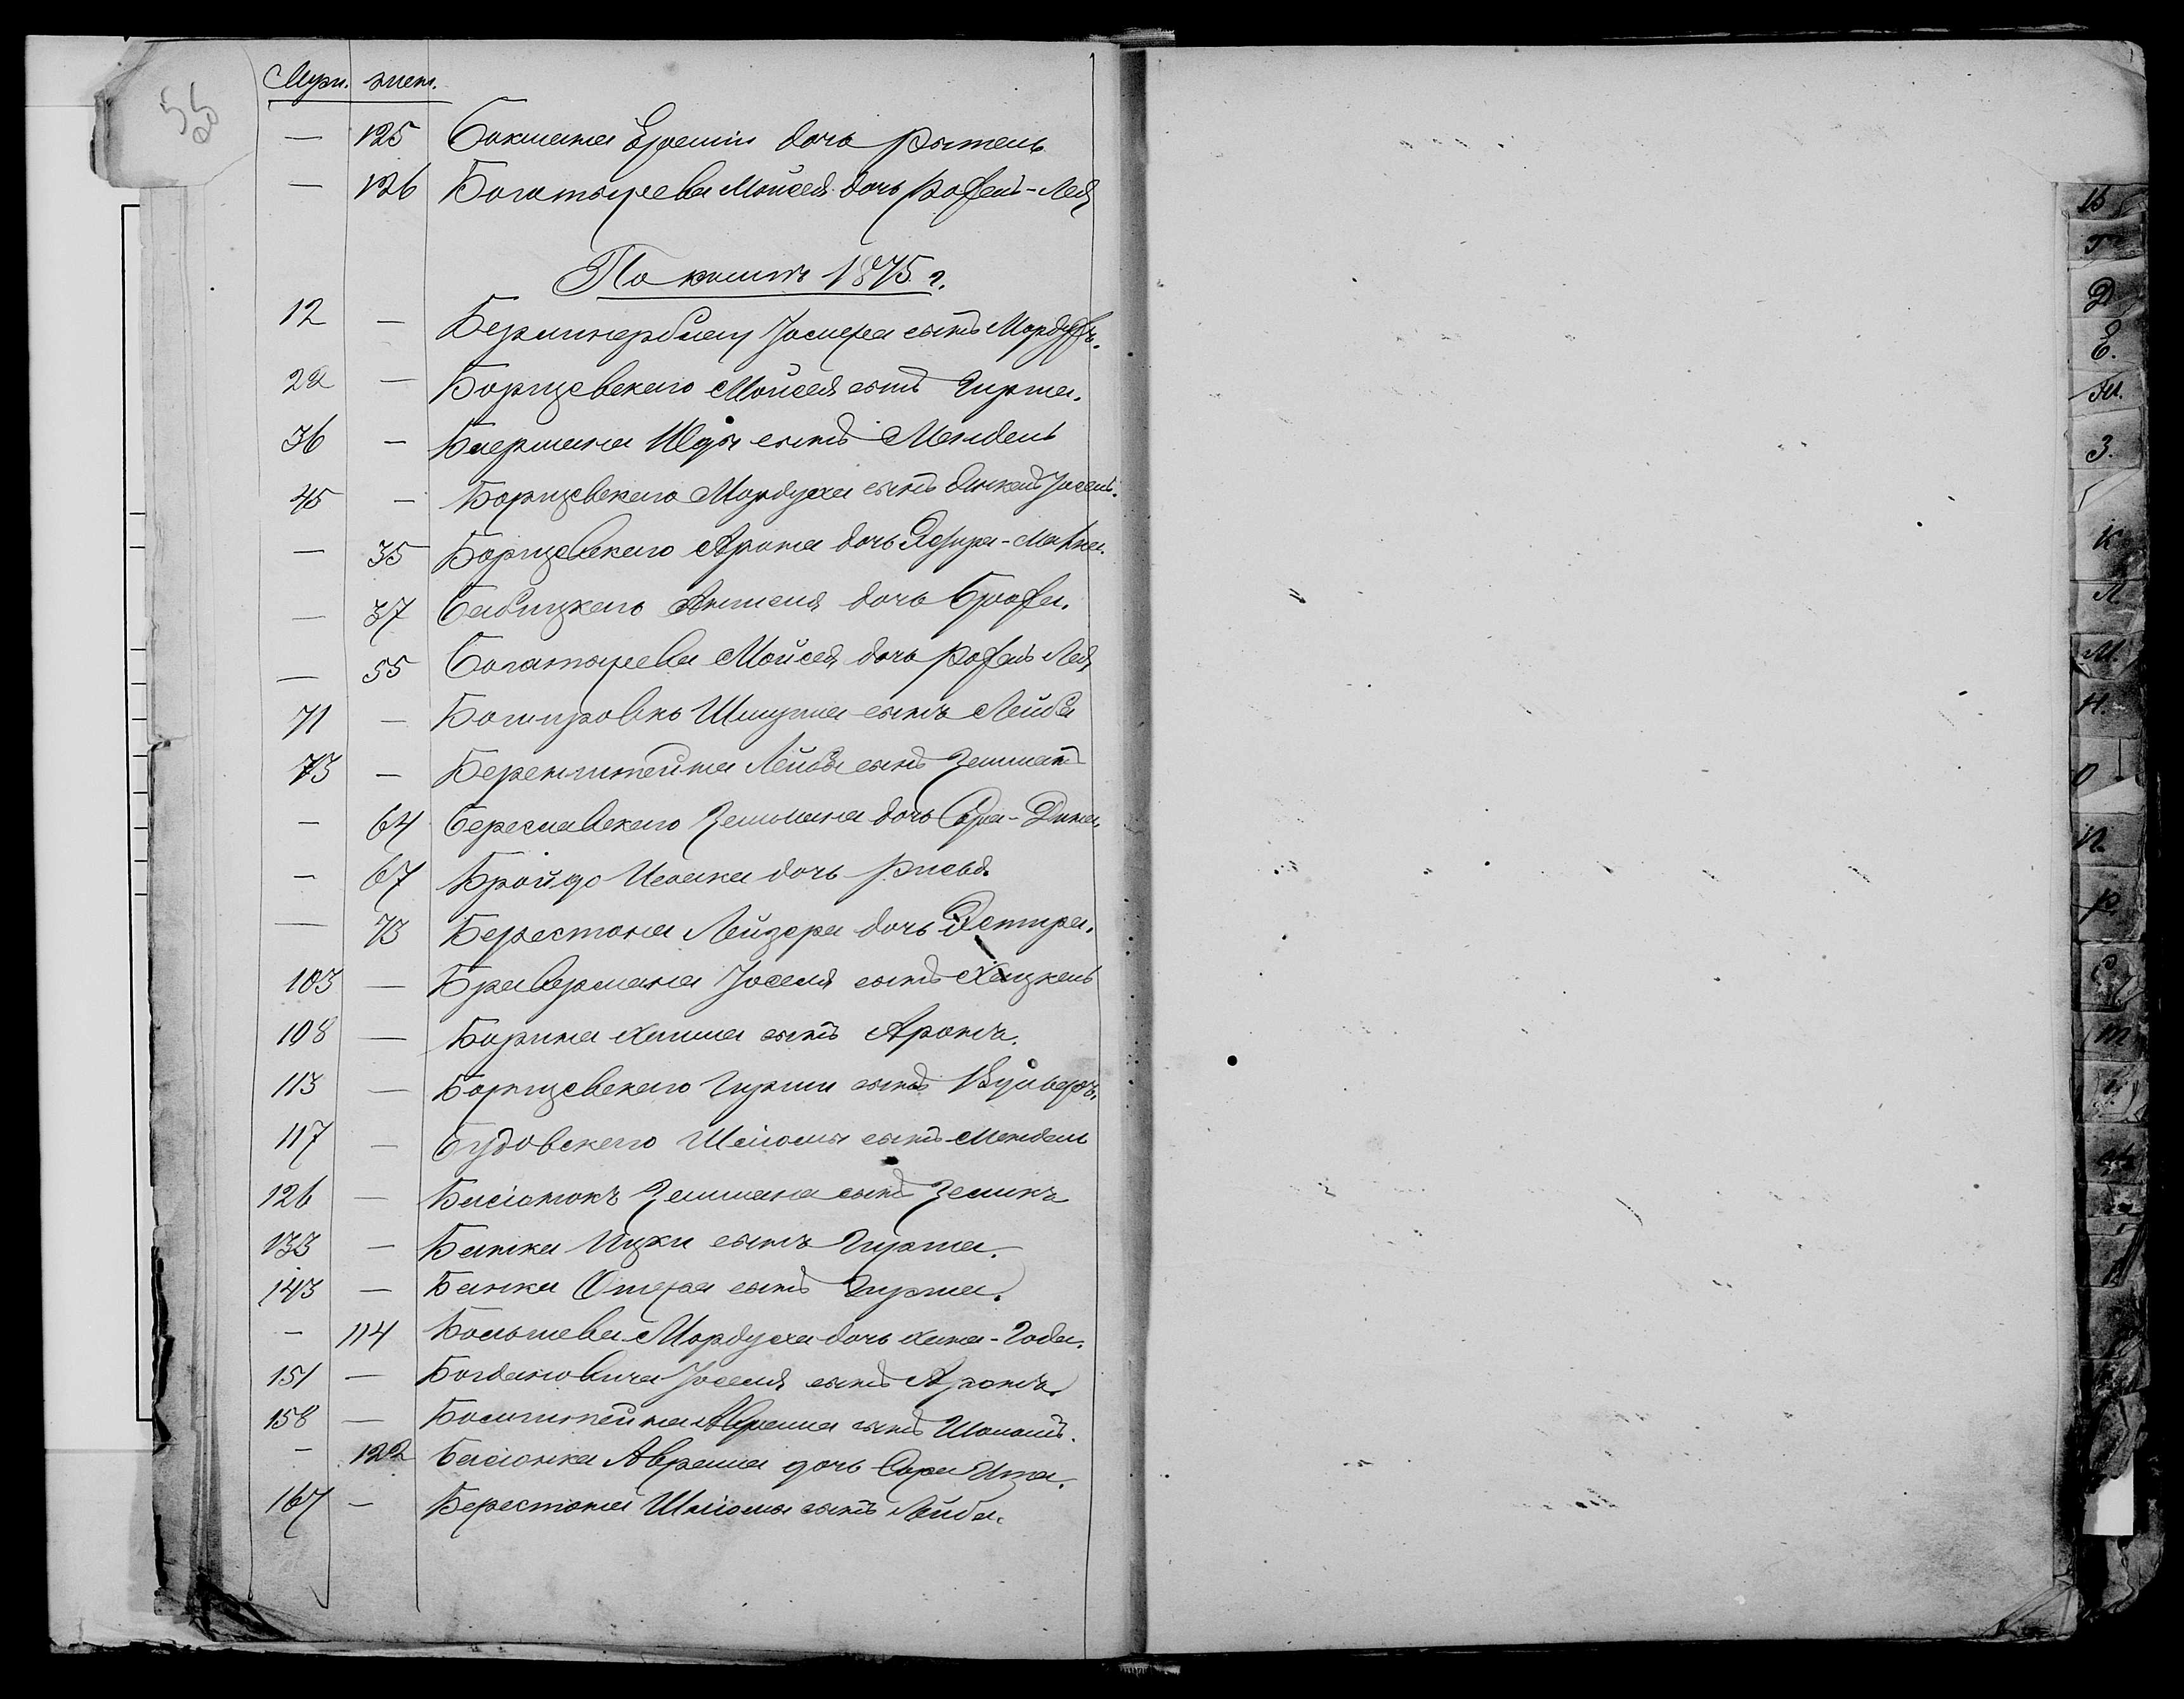 55
Муж. жен.
— 125 Бакмана Ероаши дочь Рытель
— 126 Богатырева Мойсея дочь Рохель-Лея
По книгѣ 1875 г.
12 — Іосифа сынъ Мордухъ.
22 — Борщевскаго Мойсея сынъ Гирша.
36 — Биермана Юды сынъ Мендель
45 — Борщевскаго Мордуха сынъ Янкель Іосель.
— 35 Борщевскаго Арона дочь Эсфира-Малка.
— 37 Бабицкаго Аншеля дочь Броха.
— 55 Богатырева Мойсея дочь Рохель Лея
71 — Шмуила сынъ Лейба
73 — Беренштейна Лейбы сынъ Зельманъ
— 64 Береславскаго Зельмана дочь Сора-Дина.
— 67 Бройдо Исаака дочь Рисья.
— 73 Берестона Лейзера дочь Эстира.
103 — Бравермана Іоселя сынъ Хацкель
108 — Борина Хаима сынъ Аронъ.
113 — Борщевскаго Гирши сынъ Вульфъ.
117 — Будовскаго Шліомы сынъ Мендель
126 — Басіотокъ Зельмана сынъ Зеликъ
133 — Банка Ицки сынъ Гирша.
143 — Банка Отера сынъ Гирша.
— 114 Болышева Мордуха дочь Хана-Года.
151 — Богдановича Іоселя сынъ Аронъ.
158 — Боаштейна Абрама сынъ Шоломъ.
— 122 Басіонка Абрама дочь Сора Ита.
167 — Берестона Шліомы сынъ Лейба.
В
Г
Д
Е.
Ж.
З.
К
Л
М.
Н.
О
П.
Р.
С
Т